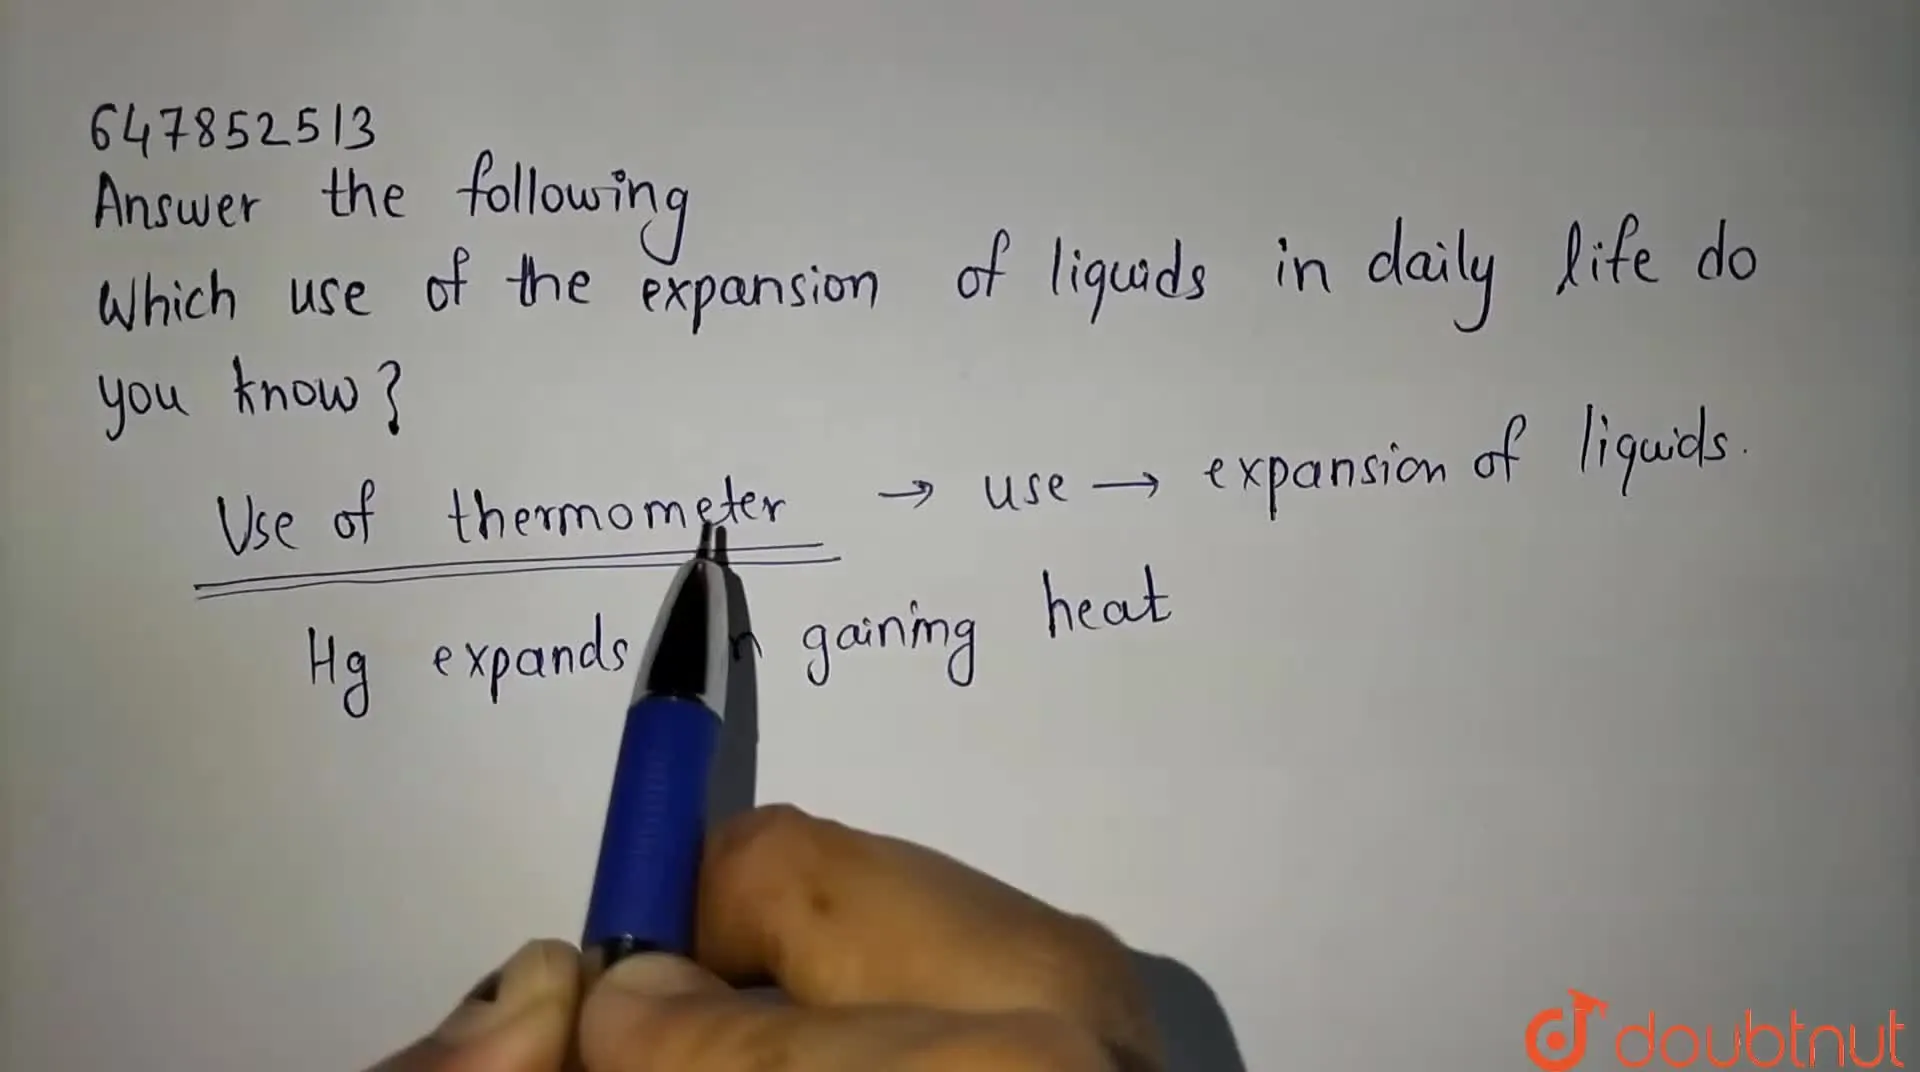 647852513
Answer the following
Which use of the expansion of liquids in daily life do
you know?
Use of thermometer → use → expansion of liquids.
Hg expands n gaining heat
doubtnut